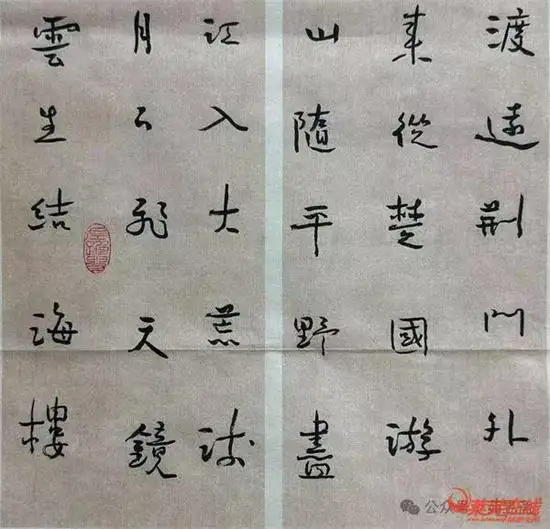 渡遠荆門外
来從楚國游
山隨平野盡
江入大荒流
月下飛天鏡
雲生結海樓
公众号